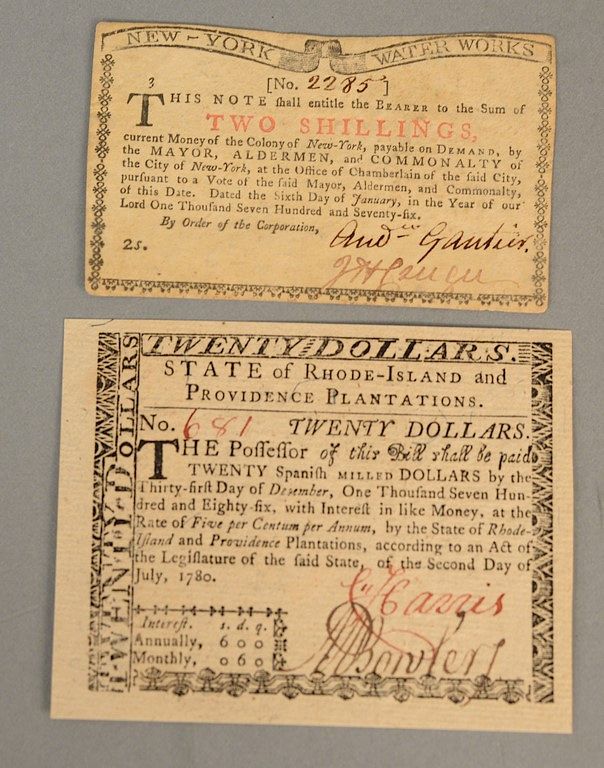 NEW-YORK WATER WORKS
[No. 2285]
3
THIS NOTE ſhall entitle the BEARER to the Sum of
TWO SHILLINGS,
current Money of the Colony of New-York, payable on DEMAND, by
the MAYOR, ALDERMEN, and COMMONALTY of
the City of New-York, at the Office of Chamberlain of the ſaid City,
purſuant to a Vote of the ſaid Mayor, Aldermen, and Commonalty,
of this Date. Dated the Sixth Day of January, in the Year of our
Lord One Thouſand Seven Hundred and Seventy-ſix.
By Order of the Corporation,
Andw Gautier.
2s.
TWENTY DOLLARS.
TWENTY DOLLARS
STATE of RHODE-ISLAND and
PROVIDENCE PLANTATIONS.
No. 681 TWENTY DOLLARS.
THE Poſſeſſor of this Bill ſhall be paid
TWENTY Spaniſh MILLED DOLLARS by the
Thirty-firſt Day of December, One Thouſand Seven Hun-
dred and Eighty-ſix, with Intereſt in like Money, at the
Rate of Five per Centum per Annum, by the State of Rhode-
Iſland and Providence Plantations, according to an Act of
the Legiſlature of the ſaid State, of the Second Day of
July, 1780.
C Harris
Intereſt. s. d. q.
Annually, 6 0 0
Monthly, 0 6 0
Bowler